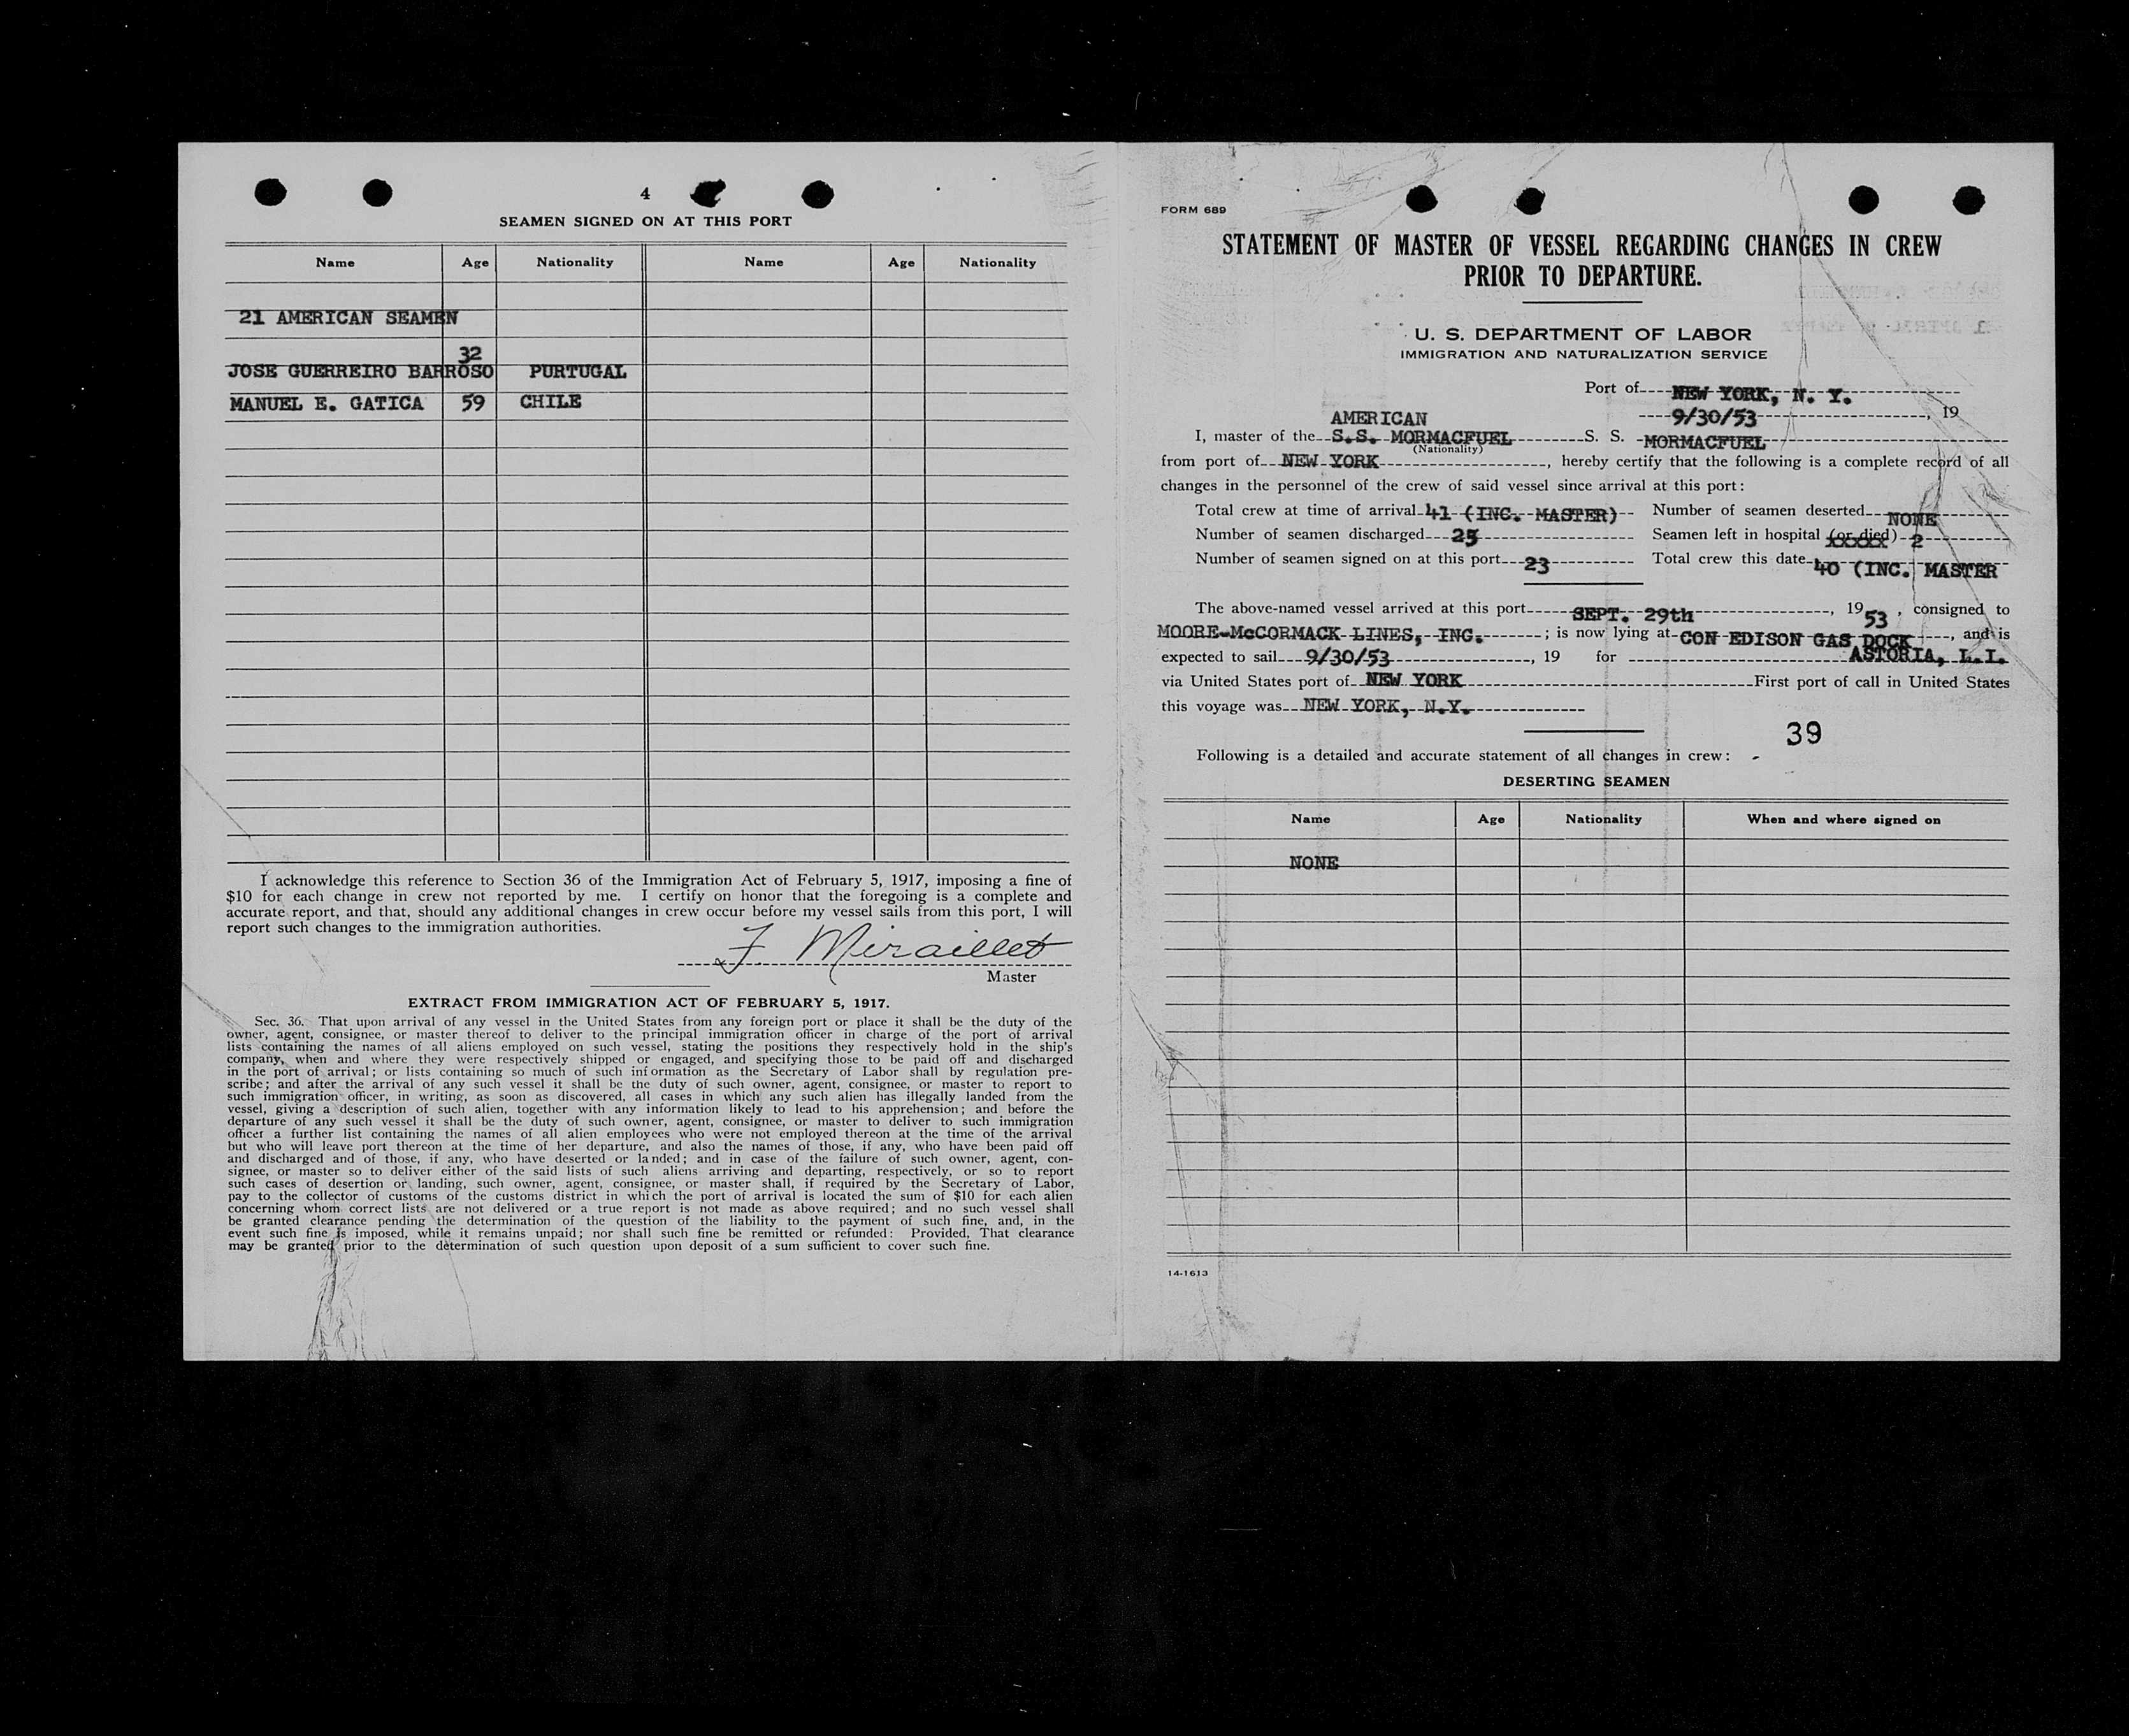 4
SEAMEN SIGNED ON AT THIS PORT
Name Age Nationality Name Age Nationality
21 AMERICAN SEAMEN
32
JOSE GUERREIRO BARROSO PURTUGAL
MANUEL E. GATICA 59 CHILE
I acknowledge this reference to Section 36 of the Immigration Act of February 5, 1917, imposing a fine of
$10 for each change in crew not reported by me. I certify on honor that the foregoing is a complete and
accurate report, and that, should any additional changes in crew occur before my vessel sails from this port, I will
report such changes to the immigration authorities.
F. Miraillet
Master
EXTRACT FROM IMMIGRATION ACT OF FEBRUARY 5, 1917.
Sec. 36. That upon arrival of any vessel in the United States from any foreign port or place it shall be the duty of the
owner, agent, consignee, or master thereof to deliver to the principal immigration officer in charge of the port of arrival
lists containing the names of all aliens employed on such vessel, stating the positions they respectively hold in the ship's
company, when and where they were respectively shipped or engaged, and specifying those to be paid off and discharged
in the port of arrival; or lists containing so much of such information as the Secretary of Labor shall by regulation pre-
scribe; and after the arrival of any such vessel it shall be the duty of such owner, agent, consignee, or master to report to
such immigration officer, in writing, as soon as discovered, all cases in which any such alien has illegally landed from the
vessel, giving a description of such alien, together with any information likely to lead to his apprehension; and before the
departure of any such vessel it shall be the duty of such owner, agent, consignee, or master to deliver to such immigration
officer a further list containing the names of all alien employees who were not employed thereon at the time of the arrival
but who will leave port thereon at the time of her departure, and also the names of those, if any, who have been paid off
and discharged and of those, if any, who have deserted or landed; and in case of the failure of such owner, agent, con-
signee, or master so to deliver either of the said lists of such aliens arriving and departing, respectively, or so to report
such cases of desertion or landing, such owner, agent, consignee, or master shall, if required by the Secretary of Labor,
pay to the collector of customs of the customs district in which the port of arrival is located the sum of $10 for each alien
concerning whom correct lists are not delivered or a true report is not made as above required; and no such vessel shall
be granted clearance pending the determination of the question of the liability to the payment of such fine, and, in the
event such fine is imposed, while it remains unpaid; nor shall such fine be remitted or refunded: Provided, That clearance
may be granted prior to the determination of such question upon deposit of a sum sufficient to cover such fine.
FORM 689
STATEMENT OF MASTER OF VESSEL REGARDING CHANGES IN CREW
PRIOR TO DEPARTURE.
U. S. DEPARTMENT OF LABOR
IMMIGRATION AND NATURALIZATION SERVICE
Port of NEW YORK, N. Y.
9/30/53, 19
AMERICAN
I, master of the S.S. MORMACFUEL S. S. MORMACFUEL
(Nationality)
from port of NEW YORK, hereby certify that the following is a complete record of all
changes in the personnel of the crew of said vessel since arrival at this port:
Total crew at time of arrival 41 (INC. MASTER) Number of seamen deserted NONE
Number of seamen discharged 25 Seamen left in hospital (or died) 2
Number of seamen signed on at this port 23 Total crew this date 40 (INC. MASTER
The above-named vessel arrived at this port SEPT. 29th, 1953, consigned to
MOORE-McCORMACK LINES, INC.; is now lying at CON EDISON GAS DOCK, and is
expected to sail 9/30/53, 19 for ASTORIA, L.I.
via United States port of NEW YORK First port of call in United States
this voyage was NEW YORK, N.Y.
39
Following is a detailed and accurate statement of all changes in crew:
DESERTING SEAMEN
Name Age Nationality When and where signed on
NONE
14-1613